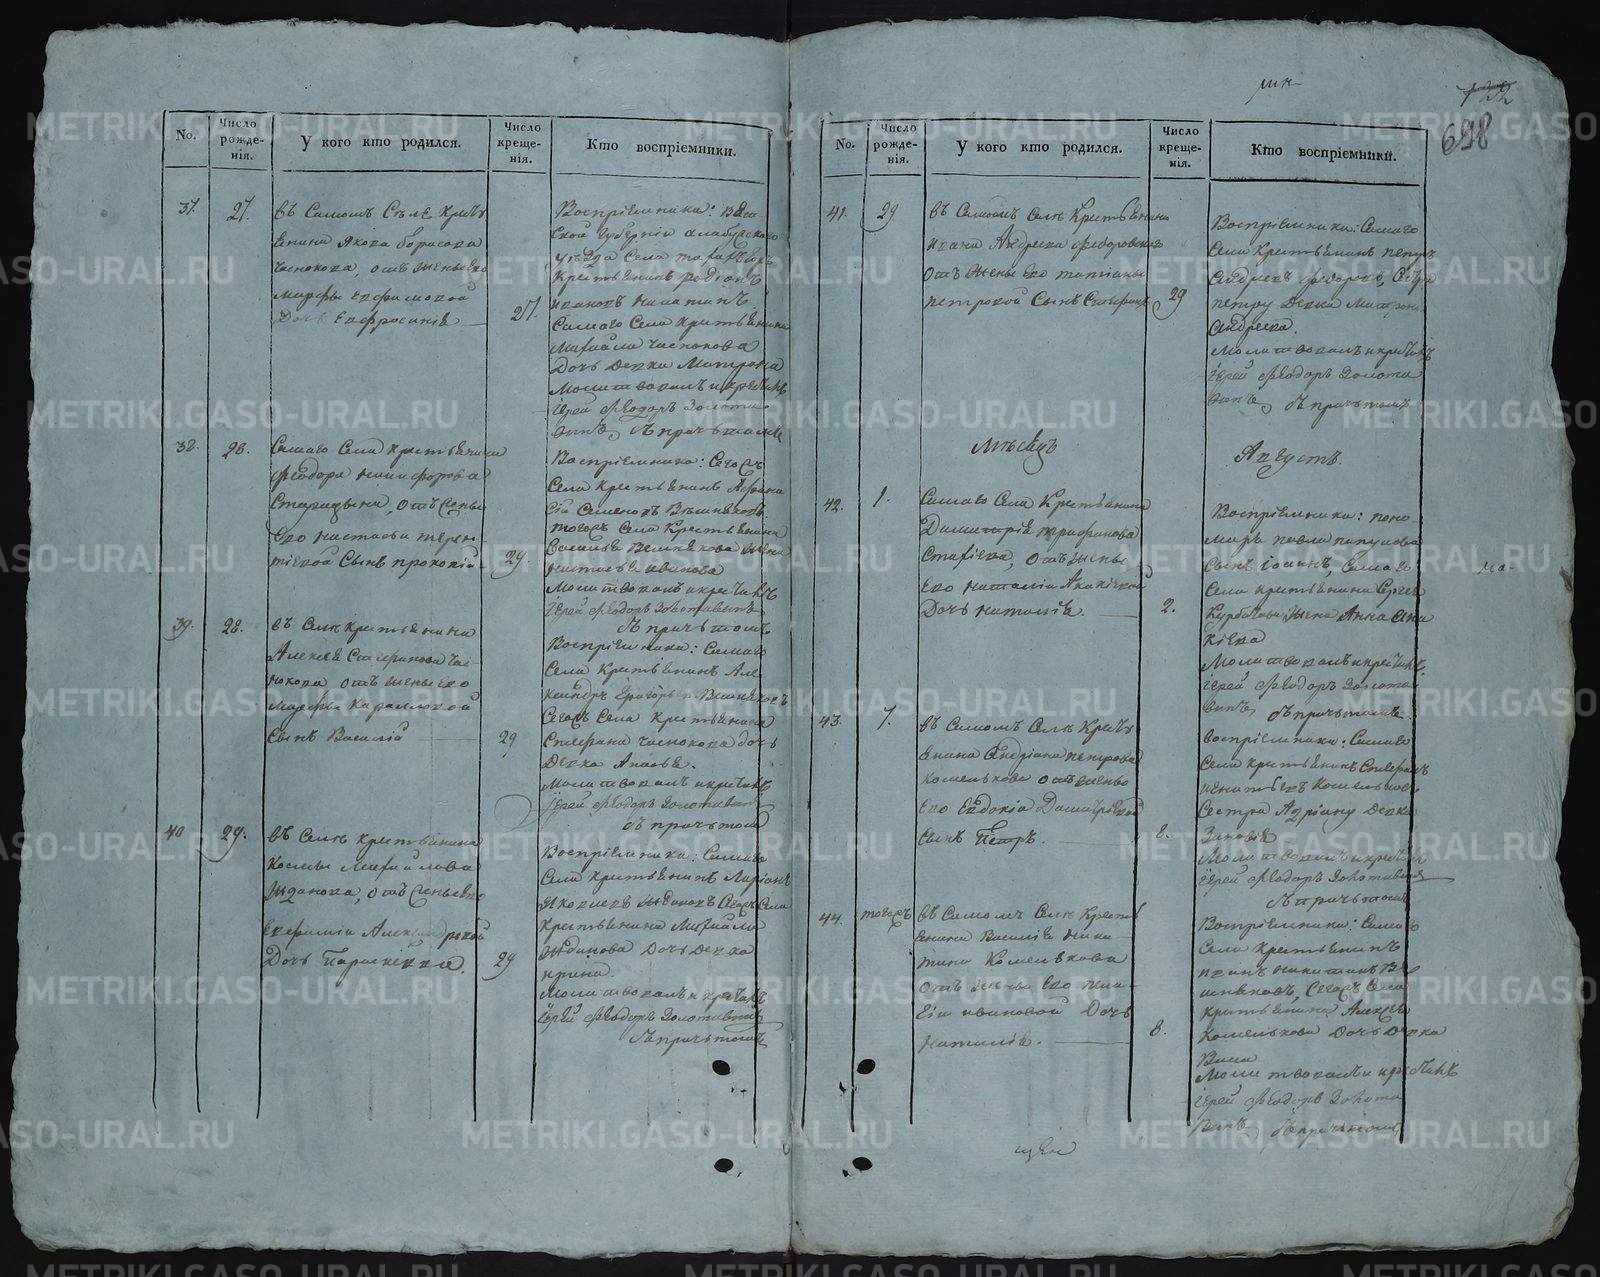 No.
Число рожде-нія.
У кого кто родился.
Число креще-нія.
Кто воспріемники.
37.
27.
въ Самомъ Селѣ Кресть
янина Якова Борисова
Чеснокова, отъ жены его
Марфы Евфимовой
Дочь Евфросинія
27.
Воспріемники: Вят
ской Губерніи
уѣзда Села
Крестьянинъ Родіонъ
Ивановъ Никитинъ
Самаго Села Крестьянина
Михаила Чеснокова
Дочь Девка Матрона
Молитвовалъ и крестилъ
Іерей Ѳеодоръ Золота
винъ, съ причьтомъ
38.
28.
Самаго Села крестьянина
Ѳеодора Никифорова
отъ жены
Его Настасьи Терен
тіевой Сынъ Прокопій.
29
Воспріемники: Сегожъ
Села Крестьянинъ Афана
сій Семеновъ Вешняковъ,
тогожъ Села Крестьянина
Василья Вешнякова жена
Настасья Иванова
Молитвовалъ и крестилъ
Іерей Ѳеодоръ Золотавинъ
съ причьтомъ
39.
28.
въ Селѣ крестьянина
Алексея Стефанова Чес
нокова отъ жены его
Марфы Кириловой
Сынъ Василій
29
Воспріемники: Самаго
Села Крестьянинъ Але
ксандръ Григорьевъ Вешняковъ
Сегожъ Села Крестьянина
Стефана Чеснокова дочь
Девка
Молитвовалъ и крестилъ
Іерей Ѳеодоръ Золотавинъ
съ причьтомъ
40
29.
въ Селѣ крестьянина
Космы Михайлова
Жданова, отъ жены его
Евфиміи Александровой
Дочь Параскевва.
29
Воспріемники: Самаго
Села крестьянинъ Ларіонъ
Яковлевъ Ждановъ Сегожъ Села
Крестьянина Михайла
Жданова Дочь Девка
Ирина.
Молитвовалъ и крестилъ
Іерей Ѳеодоръ Золотавинъ
съ причьтомъ
698
No.
Число рожде-нія.
У кого кто родился.
Число креще-нія.
Кто воспріемники.
41.
29
въ Самомъ Селѣ Крестьянина
Андреева Ѳедоровыхъ
отъ жены его Татіаны
Петровой Сынъ Стефанъ
29
Воспріемники: Самаго
Села Крестьянинъ Петръ
Андреевъ Ѳедоровъ, Сестра
Петру Девка Матрона
Андреева.
Молитвовалъ и крестилъ
Іерей Ѳеодоръ Золота
винъ, съ причьтомъ
Мѣсяцъ
Августъ.
42.
1.
Самаго Села Крестьянина
Димитрія Трифанова
отъ жены
Его Наталіи Акакіевой
Дочь Наталія.
2.
Воспріемники: поно
маря Павла
Сынъ Іоаннъ, Самаго
Села крестьянина Сергея
Курбатова жена Анна Ана
ніева
Молитвовалъ и крестилъ
Іерей Ѳеодоръ Золота
винъ, съ причьтомъ.
43.
7.
въ Самомъ Селѣ Кресть
янина Андріана Петрова
Комелькова отъ жены
Его Евдокіи Димитріевой
сынъ Петръ.
8.
воспріемники: Самаго
Села крестьянинъ Стефанъ
Игнатьевъ Комельковъ
Сестра Адріану Девка
Зиновія
Молитвовалъ и крестилъ
Іерей Ѳеодоръ Золотавинъ
съ причьтомъ
44.
тогожъ
въ Самомъ Селѣ Кресть
янина Василія Ники
тина Комелькова
отъ жены Его
Ивановой Дочь
Наталія.
8.
Воспріемники: Самаго
Села Крестьянинъ
Иванъ Никитинъ Ве
шняковъ, Сегожъ Села
крестьянина Алексея
Комелькова Дочь Девка
Васса
Молитвовалъ и крестилъ
Іерей Ѳеодоръ Золота
винъ, съ причьтомъ
METRIKI.GASO-URAL.RU